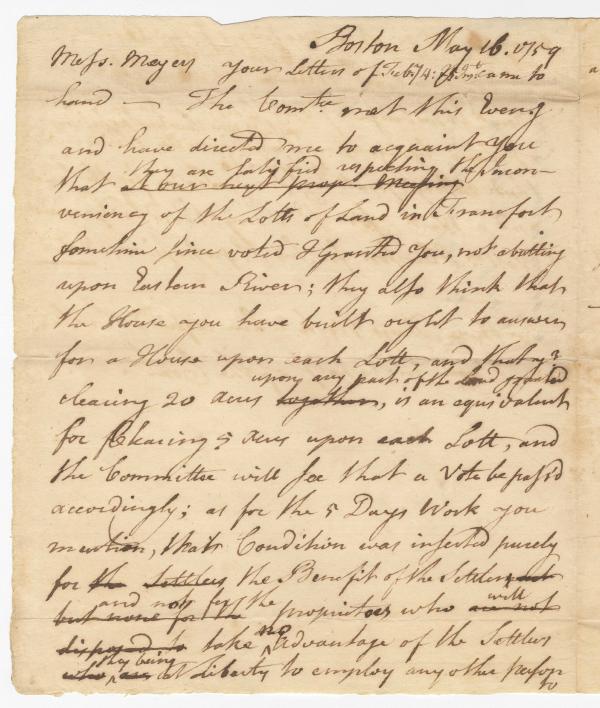 Boston May 16. 1759
Mess. Meyers your Letters of Feb. 14: came to
hand — The Comtee met this Eveng
and have directed me to acquaint you
they are satisfied respecting the Incon-
that at our next prop. Meeting
veniency of the Lotts of Land in Francfort
sometime since voted & granted you, not abutting
upon Eastern River; they also think that
the House you have built ought to answer
for a House upon each Lott, and that yr
upon any part of the Land granted
clearing 20 Acres together, is an equivalent
for clearing 5 Acres upon each Lott, and
the Committee will see that a Vote be pass'd
accordingly; as for the 5 Days Work you
mention, that Condition was inserted purely
for the Settlers the Benefit of the Settlers
and not for the will
but none for the proprietors who are not
disposed to take no Advantage of the Settlers
they being
who are at Liberty to employ any other person
to